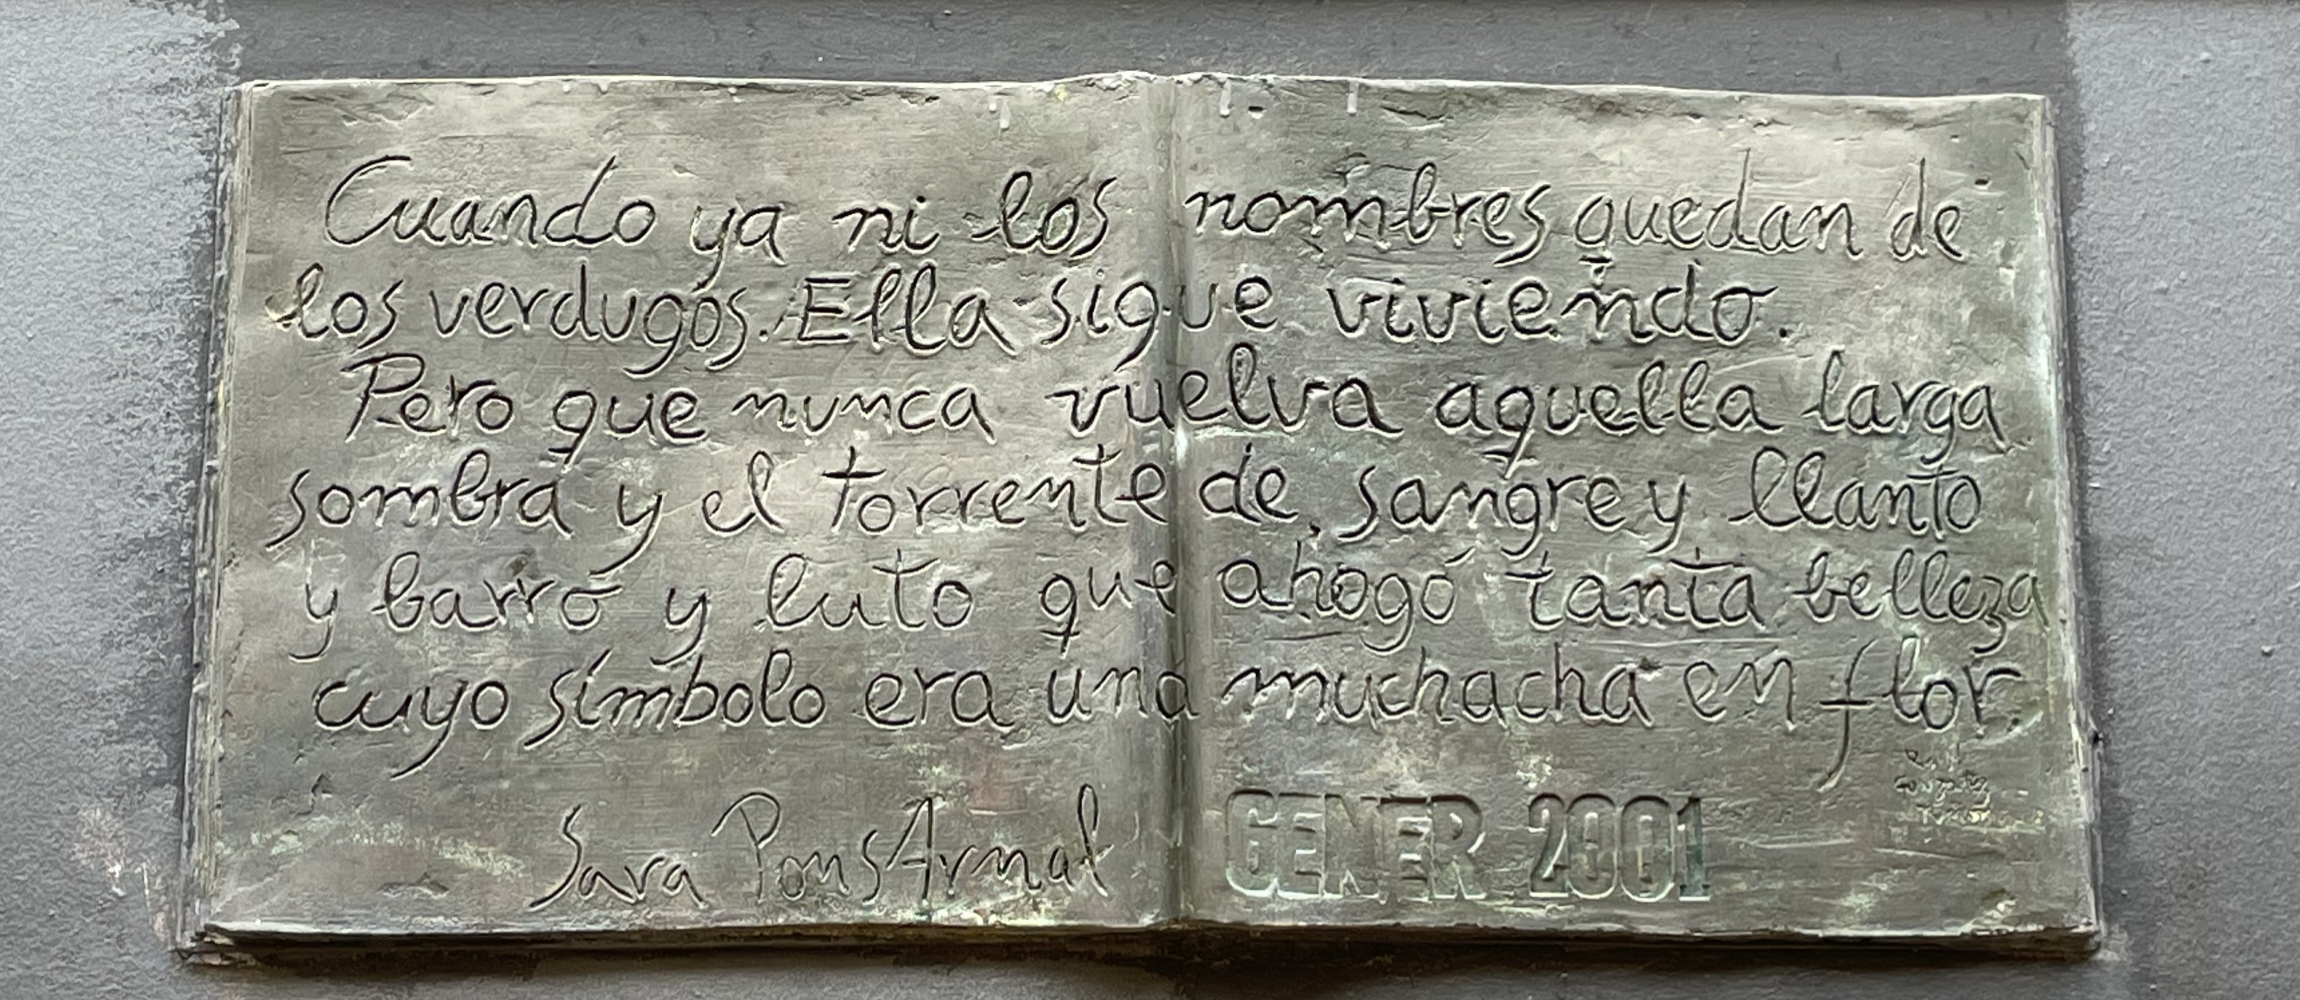 Cuando ya ni los nombres quedan de
los verdugos. Ella sigue viviendo.
Pero que nunca vuelva aquella larga
sombra y el torrente de sangre y llanto
y barro y luto que ahogó tanta belleza
cuyo símbolo era una muchacha en flor.
Sara Pons Arnal
GENER 2001